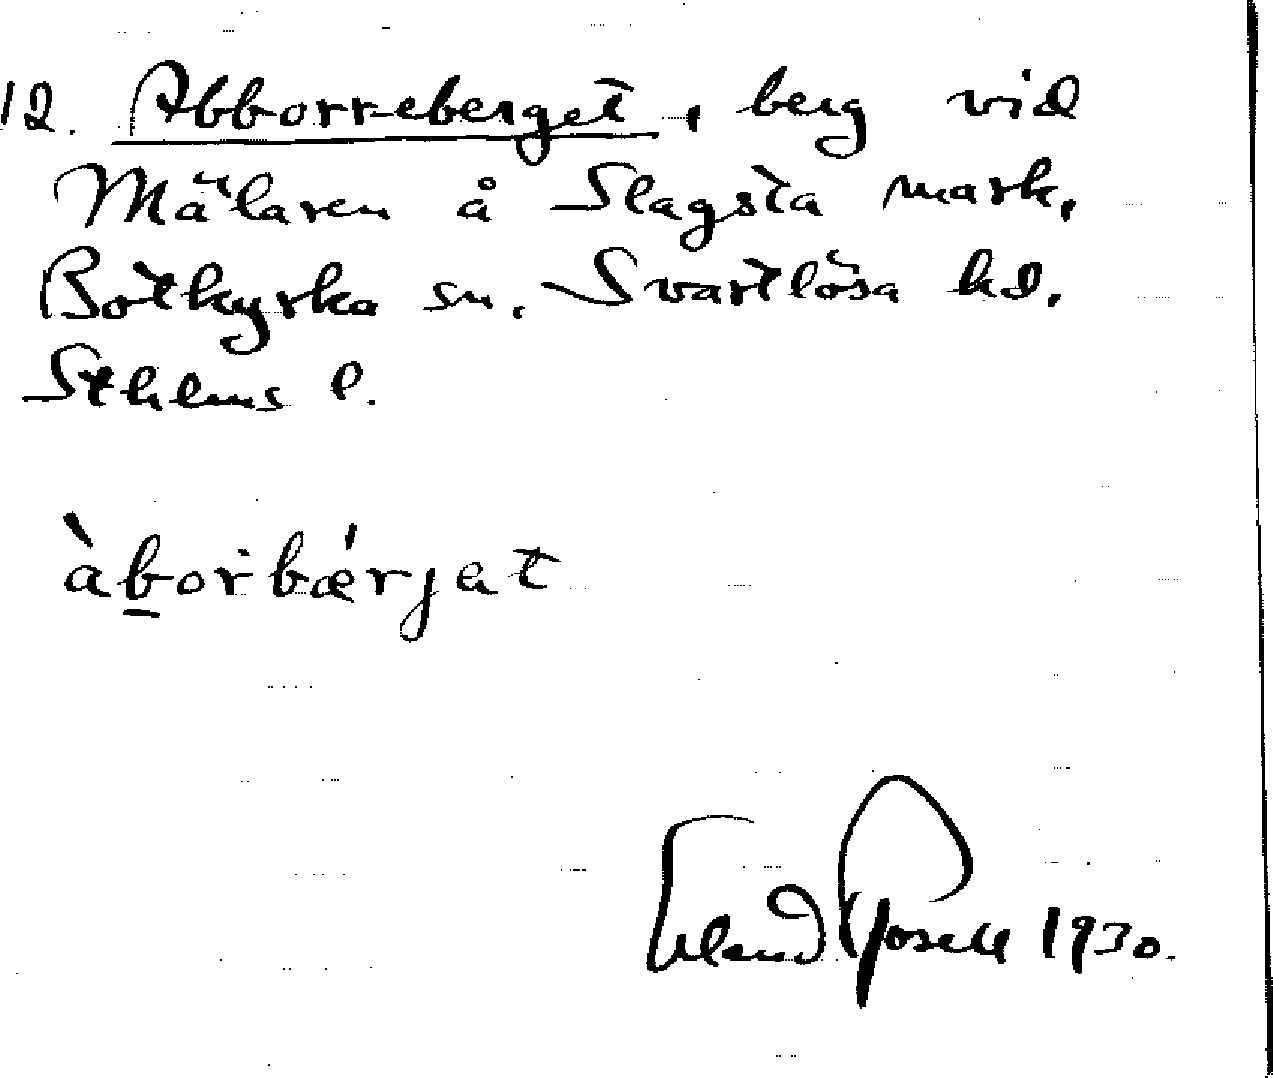 12. Abborreberget, berg vid
Mälaren å Slagsta mark,
Botkyrka sn. Svartlösa hd.
Sthlms l.
àborbǽrjat
Erland Rosell 1930.